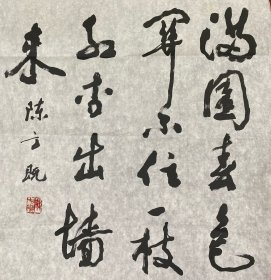 满园春色
关不住一枝
红杏出墙
来
陈方既